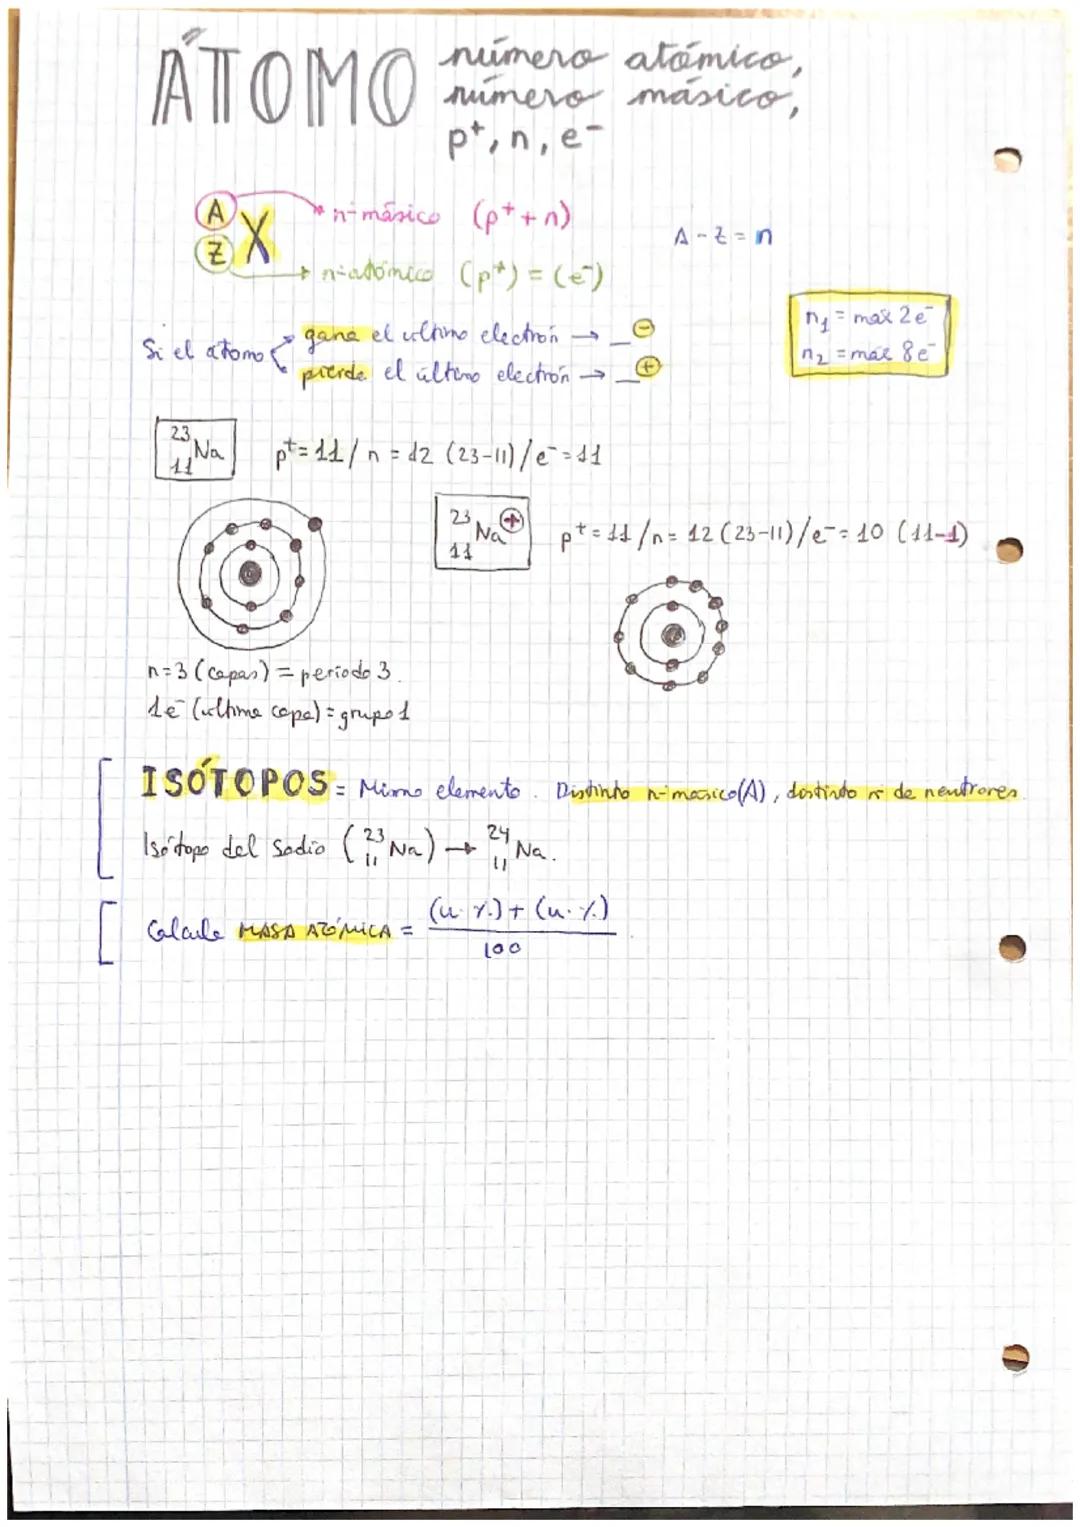 ÁTOMO número atómico,
número másico,
p⁺, n, e⁻
A
Z X
nº másico (p⁺ + n)
A - Z = n
nº atómico (p⁺) = (e⁻)
Si el átomo
gana el último electrón → _ ⊖
pierde el último electrón → _ ⊕
n₁ = max 2e⁻
n₂ = máx 8e⁻
²³₁₁Na p⁺ = 11 / n = 12 (23-11) / e⁻ = 11
²³₁₁Na⊕ p⁺ = 11 / n = 12 (23-11) / e⁻ = 10 (11-1)
n=3 (capas) = periodo 3.
1e⁻ (última capa) = grupo 1
ISÓTOPOS = Mismo elemento. Distinto nº másico (A), distinto nº de neutrones.
Isótopo del Sodio (²³₁₁Na) → ²⁴₁₁Na.
Calcule MASA ATÓMICA = (u · %) + (u · %)
100